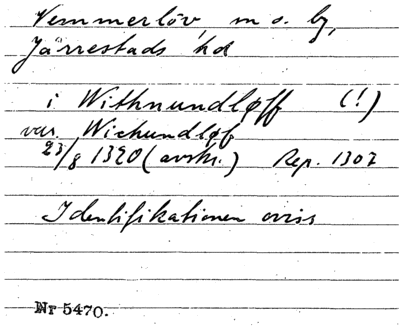 Vemmerlöv, m o. by,
Järrestads hd
i Withnundløff (!)
var. Wichundløf
23/8 1320 (avskr.) Rep. 1307
Identifikationen oviss
Nr 5470.